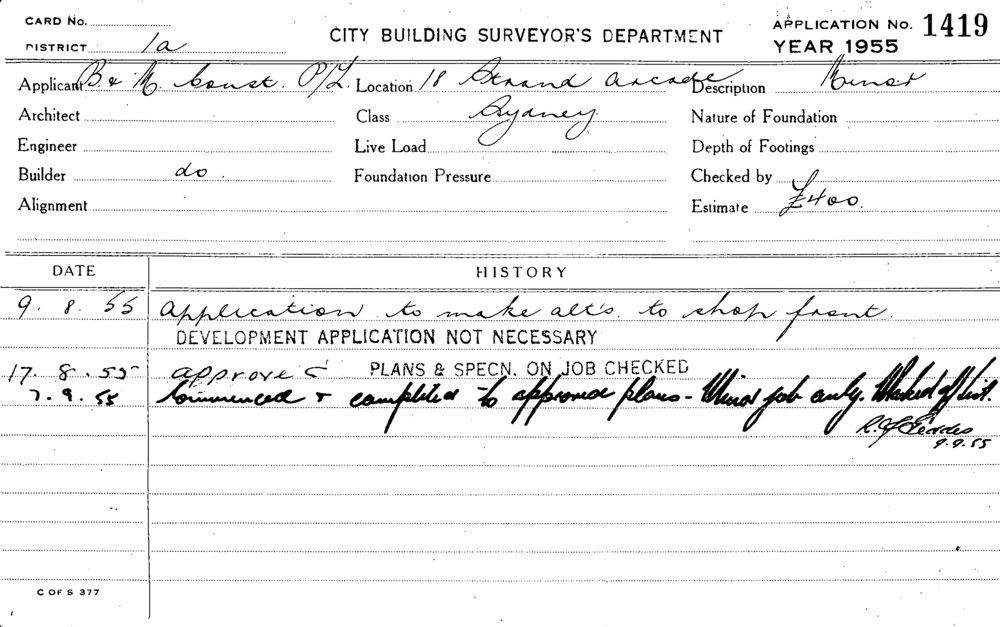 CARD No.
DISTRICT 1a
CITY BUILDING SURVEYOR'S DEPARTMENT
APPLICATION No. 1419
YEAR 1955
Applicant B & M. Const. P/L. Location 18 Strand Arcade Description Minor
Architect Class Sydney Nature of Foundation
Engineer Live Load Depth of Footings
Builder do. Foundation Pressure Checked by
Alignment Estimate £400.
DATE HISTORY
9. 8. 55 Application to make alt's. to shop front.
DEVELOPMENT APPLICATION NOT NECESSARY
17. 8. 55 approved PLANS & SPECN. ON JOB CHECKED
7. 9. 55 Commenced & completed to approved plans - Minor job only. Marked off list.
9.9.55
C OF S 377